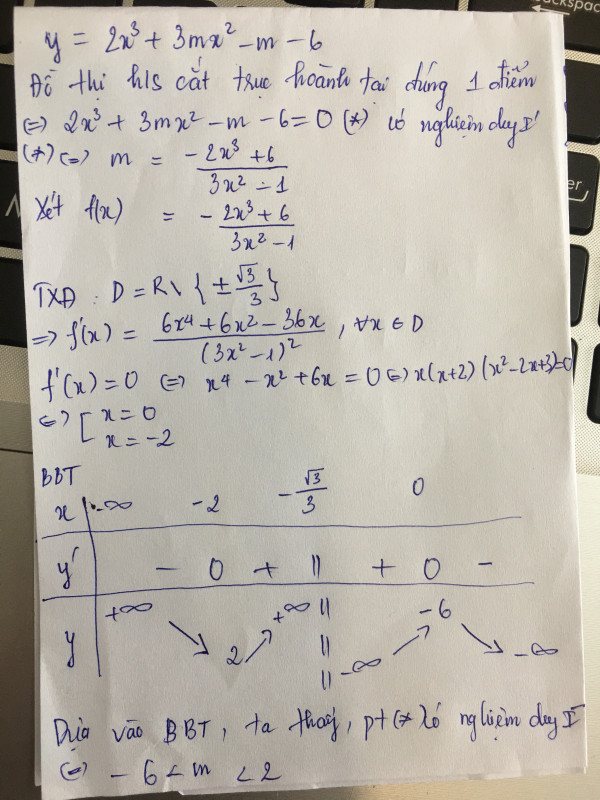 y = 2x³ + 3mx² - m - 6
Đồ thị h/s cắt trục hoành tại đúng 1 điểm
(=) 2x³ + 3mx² - m - 6 = 0 (*) có nghiệm duy I'
(*) (=) m = (-2x³ + 6)/(3x² - 1)
Xét f(x) = - (2x³ + 6)/(3x² - 1)
TXĐ : D = R \ { ± √3/3 }
=> f'(x) = (6x⁴ + 6x² - 36x)/(3x² - 1)², ∀x ∈ D
f'(x) = 0 (=) x⁴ - x² + 6x = 0 (=) x(x+2)(x²-2x+3)=0
(=) [ x = 0
x = -2
BBT
x -∞ -2 -√3/3 0
y' - 0 + || + 0 -
y +∞ ↘ 2 ↗ +∞ || -∞ ↗ -6 ↘ -∞
Dựa vào BBT, ta thấy, pt (* có nghiệm duy I'
(=) - 6 < m < 2